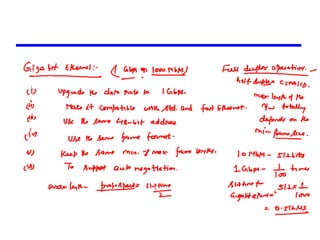 Gigabit Ethernel:- (1 Gbps or 1000 Mbps)
(i) Upgrade the data rate to 1 Gbps.
(ii) Make it compatible with std. and fast Ethernet.
(iii) Use the same 48-bit address
(iv) Use the same frame format.
(v) Keep the same min. & max frame lengths.
(vi) To support auto negotiation.
max length = slot time
2
Full duplex operation.
half duplex CSMA/CD.
max length of the
totally
depends on the
min frame size.
10 Mbps - 512 bits
1 Gbps - 1 times
100
Slot time for
Gigabit Ethernet = 512 x 1
1000
= 0.512 µs